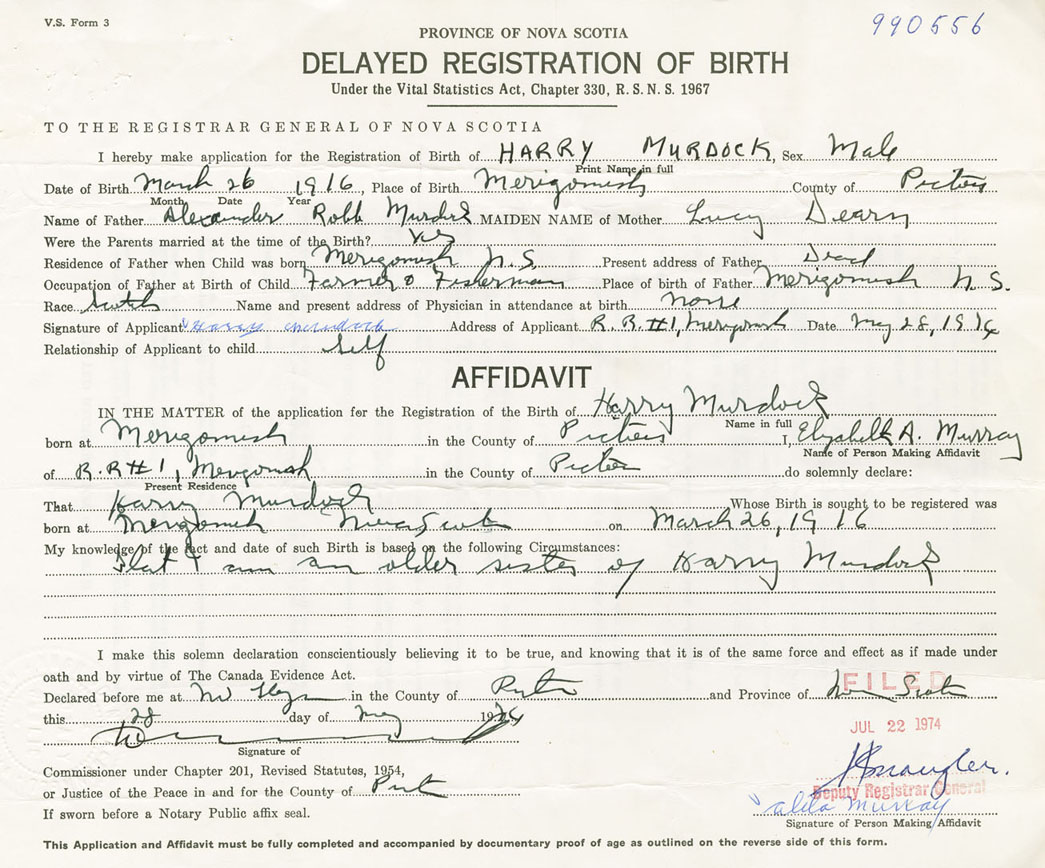 V.S. Form 3
990556
PROVINCE OF NOVA SCOTIA
DELAYED REGISTRATION OF BIRTH
Under the Vital Statistics Act, Chapter 330, R.S.N.S. 1967
TO THE REGISTRAR GENERAL OF NOVA SCOTIA
I hereby make application for the Registration of Birth of HARRY MURDOCK, Sex Male
Print Name in full
Date of Birth March 26 1916, Place of Birth Merigomish County of Pictou
Month Date Year
Name of Father Alexander Robb Murdock MAIDEN NAME of Mother Lucy Dearn
Were the Parents married at the time of the Birth? Yes
Residence of Father when Child was born Merigomish N.S. Present address of Father Dead
Occupation of Father at Birth of Child Farmer & Fisherman Place of birth of Father Merigomish N.S.
Race Scotch Name and present address of Physician in attendance at birth none
Signature of Applicant Harry Murdock Address of Applicant R.R.#1, Merigomish Date May 28, 1974
Relationship of Applicant to child Self
AFFIDAVIT
IN THE MATTER of the application for the Registration of the Birth of Harry Murdock
Name in full
born at Merigomish in the County of Pictou I, Elizabeth A. Murray
Name of Person Making Affidavit
of R.R#1, Merigomish in the County of Pictou do solemnly declare:
Present Residence
That Harry Murdock Whose Birth is sought to be registered was
born at Merigomish Nova Scotia on March 26, 1916
My knowledge of the fact and date of such Birth is based on the following Circumstances:
That I am an older sister of Harry Murdock
I make this solemn declaration conscientiously believing it to be true, and knowing that it is of the same force and effect as if made under
oath and by virtue of The Canada Evidence Act.
Declared before me at in the County of Pictou and Province of Nova Scotia
FILED
this 28 day of May 1974
JUL 22 1974
Signature of
Commissioner under Chapter 201, Revised Statutes, 1954,
or Justice of the Peace in and for the County of Pict
Deputy Registrar General
If sworn before a Notary Public affix seal.
Murray
Signature of Person Making Affidavit
This Application and Affidavit must be fully completed and accompanied by documentary proof of age as outlined on the reverse side of this form.